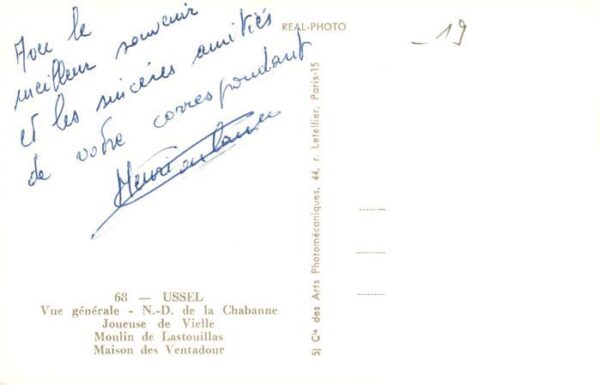 Avec le
meilleur souvenir
et les sincères amitiés
de votre correspondant
REAL-PHOTO
- 19
S) Cie des Arts Photomécaniques, 44, r. Letellier, Paris-15
68 — USSEL
Vue générale - N.-D. de la Chabanne
Joueuse de Vielle
Moulin de Lastouillas
Maison des Ventadour